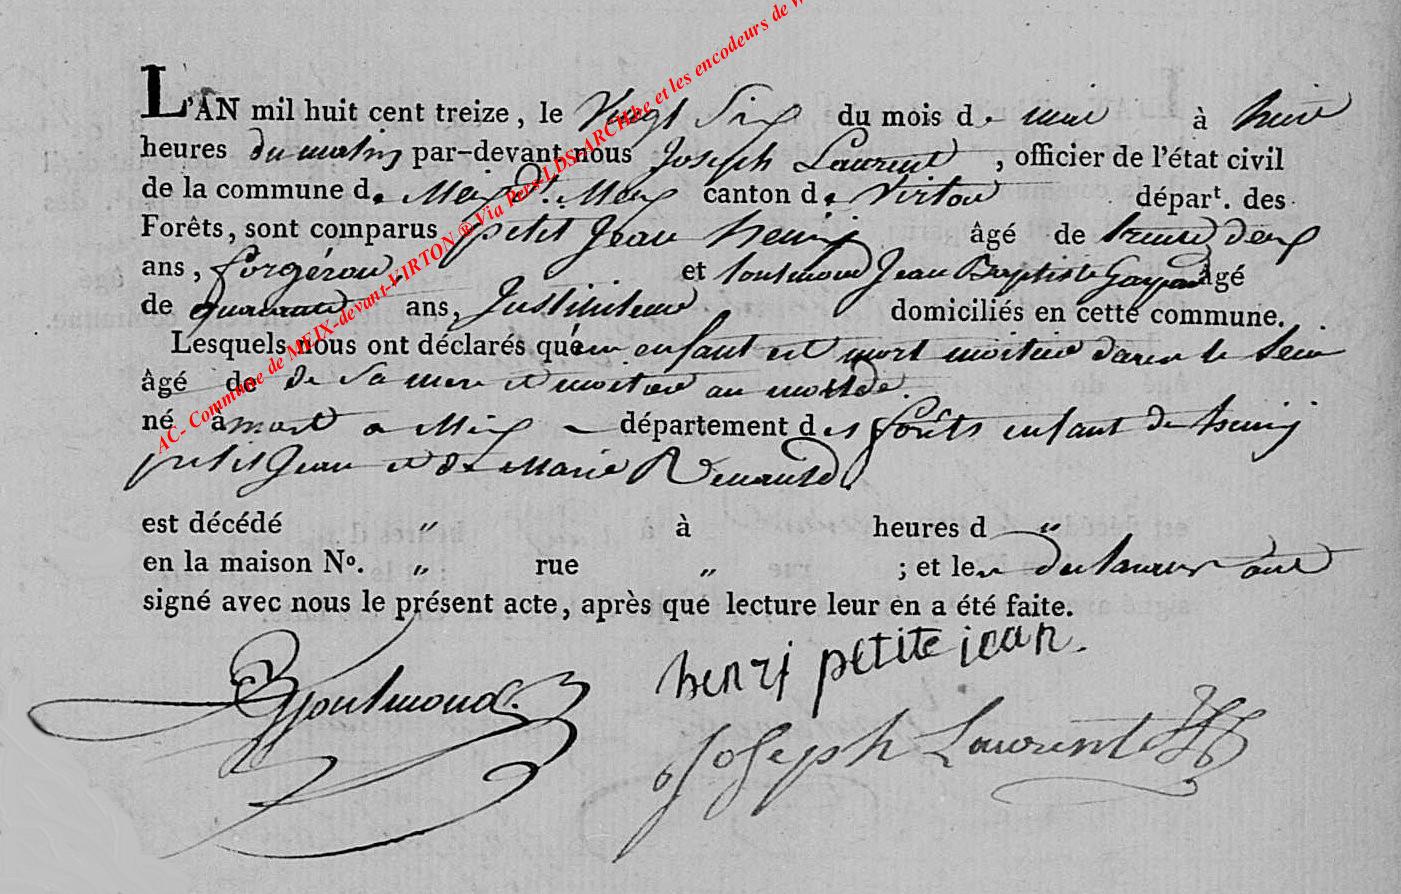 L'AN mil huit cent treize, le Vingt Six du mois de mai à huit
heures du matin par-devant nous Joseph Laurent, officier de l'état civil
de la commune de Meix dt. Meix canton de Virton départ. des
Forêts, sont comparus petit Jean henrij âgé de trente deux
ans, forgéron, et toutmond Jean Baptiste Gaspard âgé
de quarante ans, Justituteur domiciliés en cette commune.
Lesquels nous ont déclarés qu'un enfant est mort moitier dans le sein
âgé de de sa mere et moitier au monde.
né à mort a Meix département des forêts enfant de henrij
petit Jean et de Marie Renauld.
est décédé " à heures d "
en la maison No. " rue " ; et les declarans ont
signé avec nous le présent acte, après que lecture leur en a été faite.
henri petite jean.
toutmond.
Joseph Laurent
AC- Commune de MEIX-devant-VIRTON ® Via Pers-LDS-ARCHbe et les encodeurs de